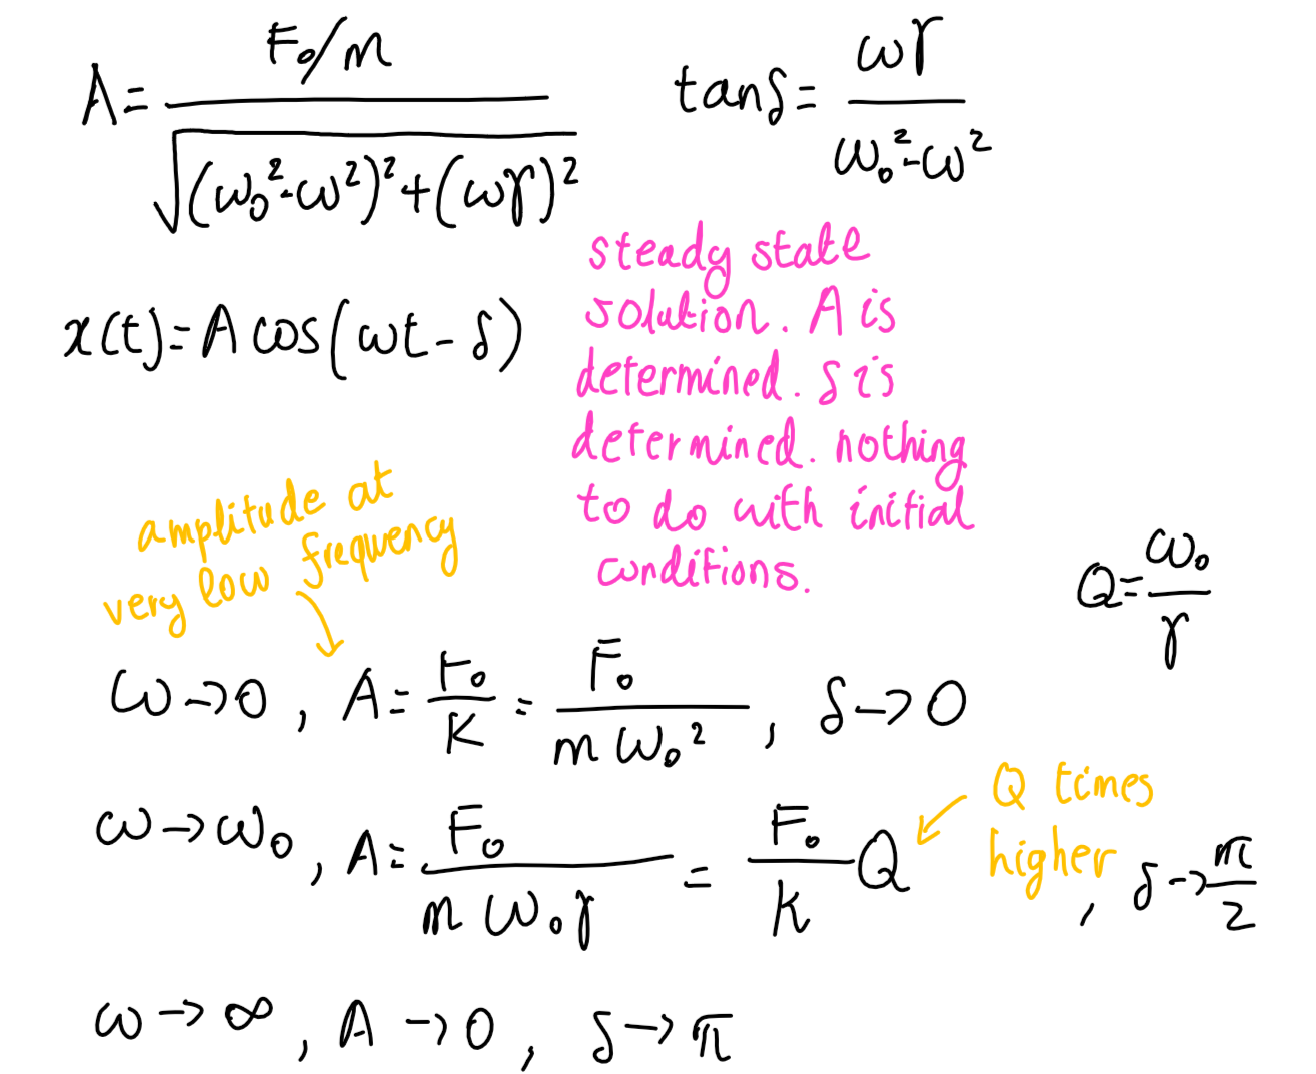 A = F₀/m / √((ω₀²-ω²)²+(ωγ)²)
tanδ = ωγ / ω₀²-ω²
x(t) = A cos(ωt - δ)
steady state
solution. A is
determined. δ is
determined. nothing
to do with initial
conditions.
amplitude at
very low frequency
Q = ω₀/γ
ω→0, A = F₀/K = F₀/mω₀², δ→0
ω→ω₀, A = F₀/mω₀γ = F₀/k Q
Q times
higher
, δ→π/2
ω→∞, A→0, δ→π